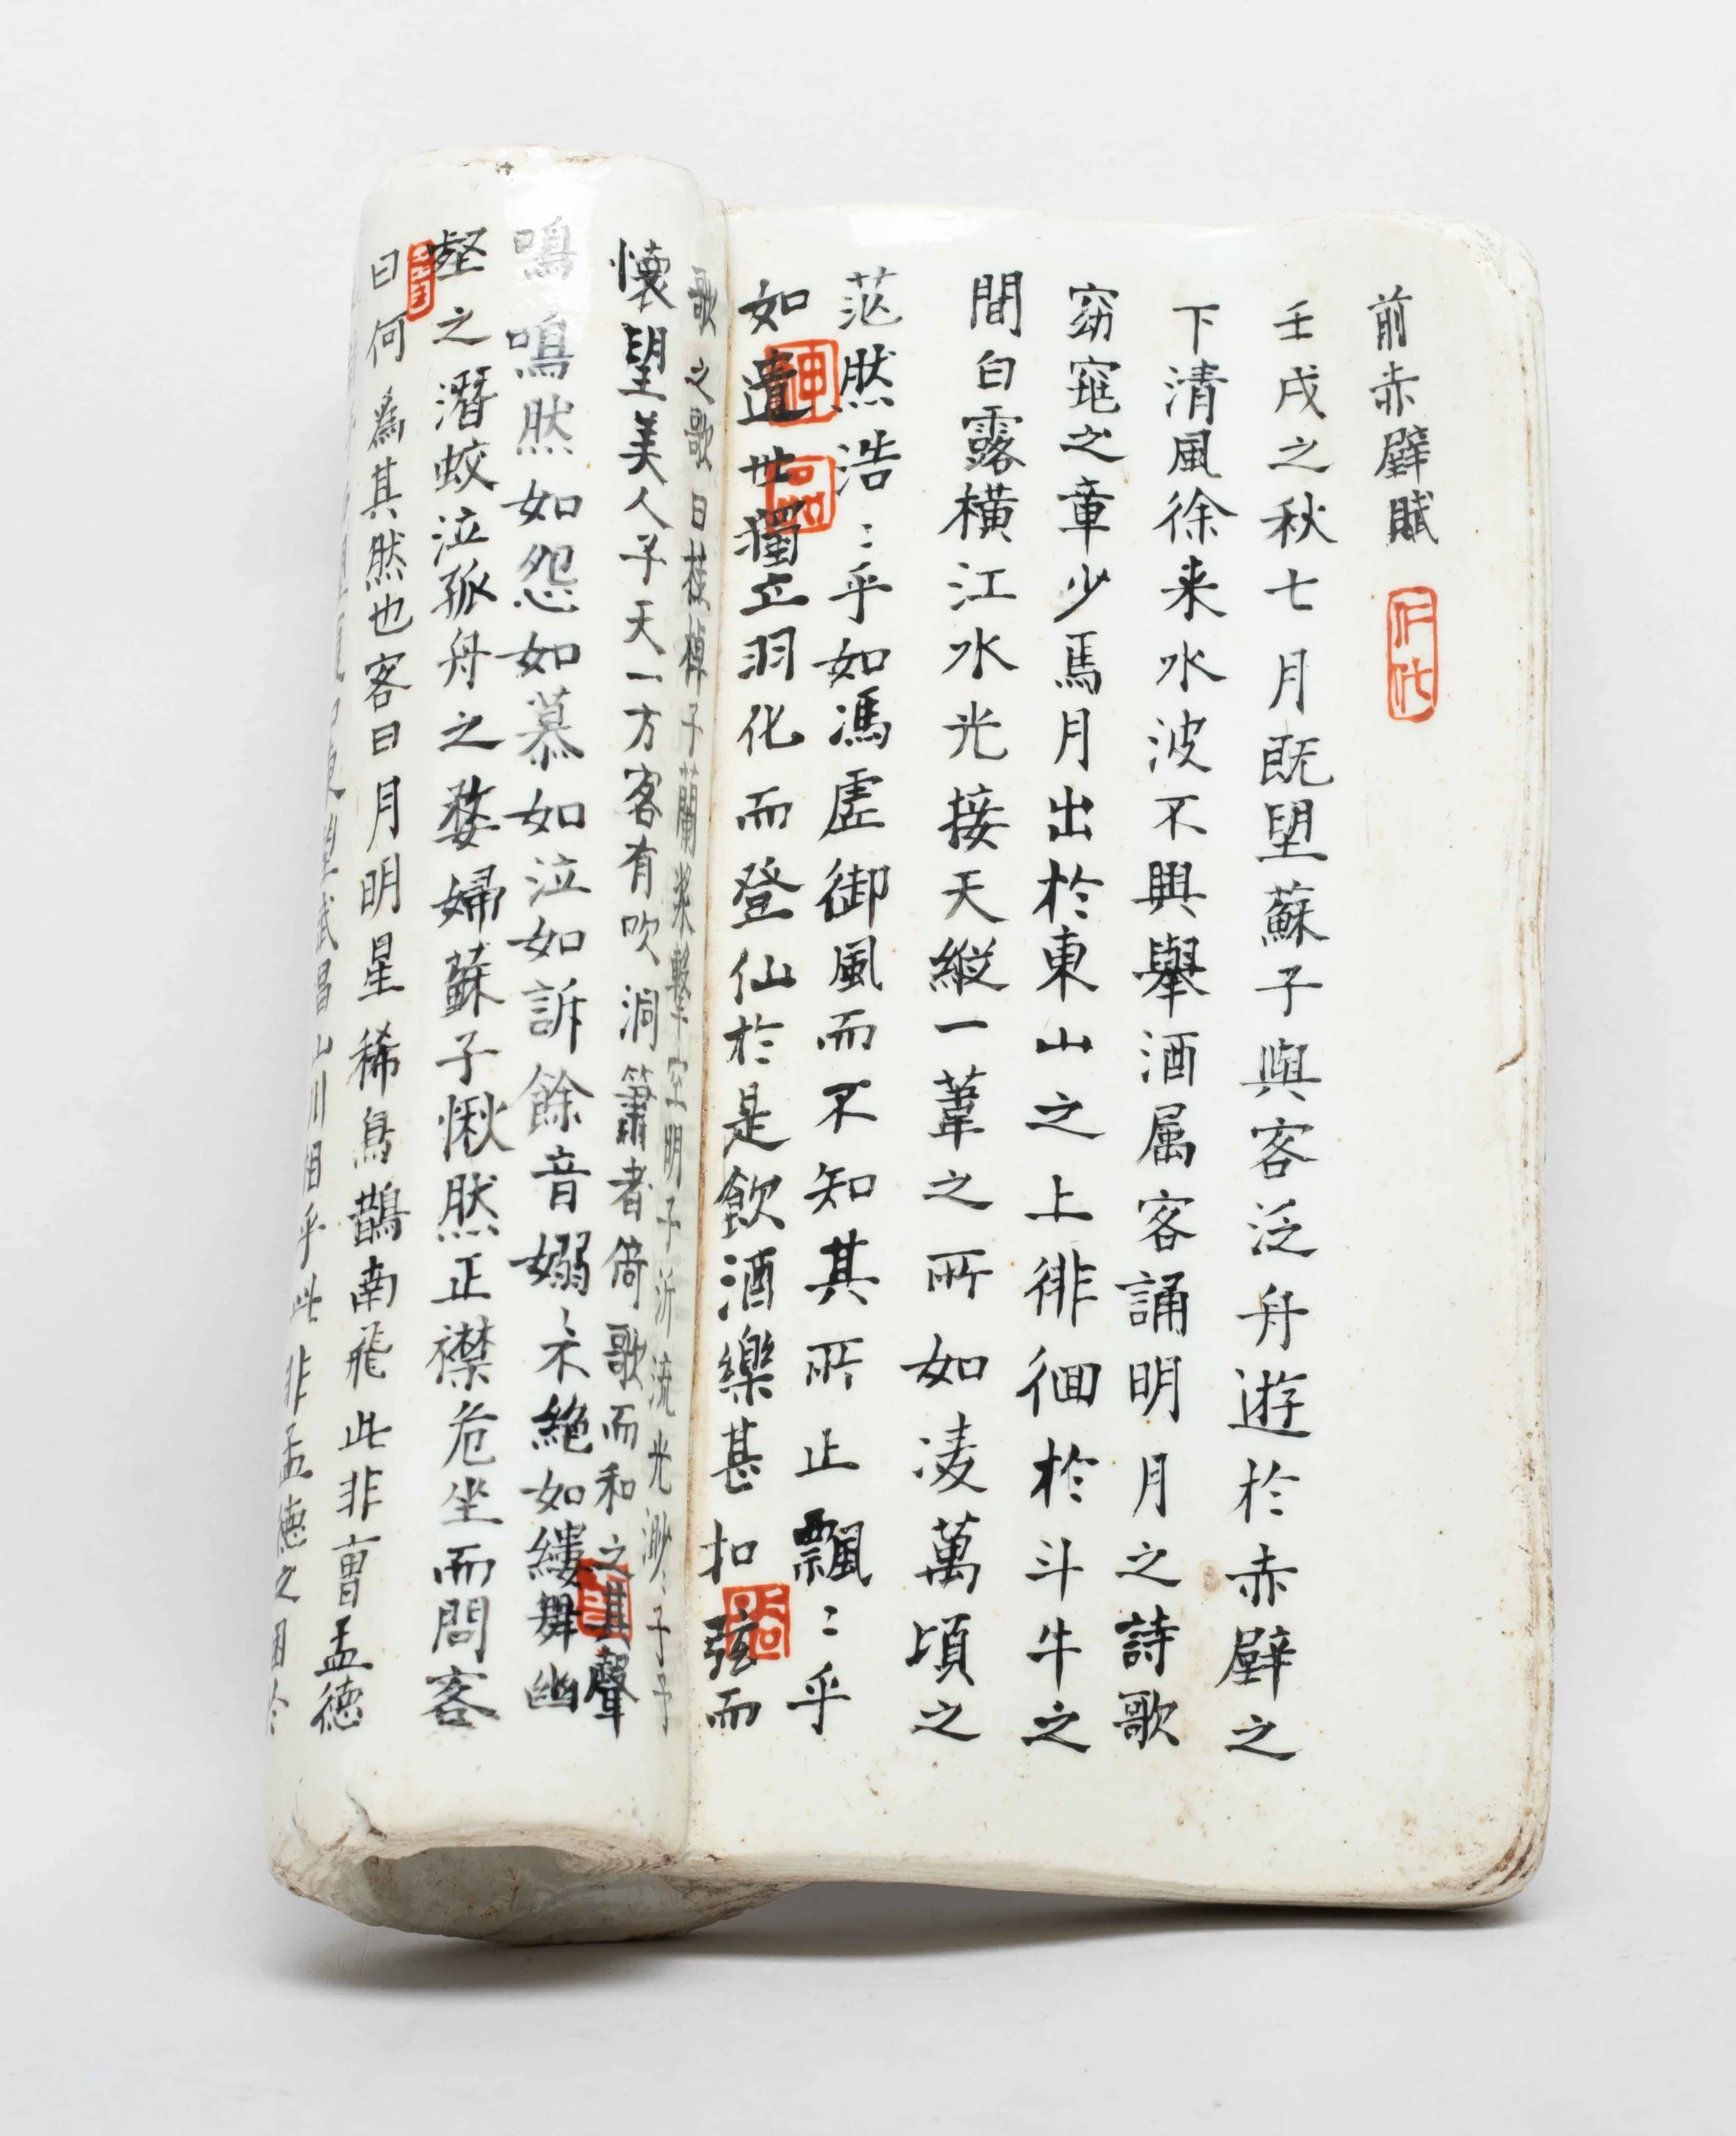 前赤壁賦
壬戌之秋七月既望蘇子與客泛舟遊於赤壁之
下清風徐来水波不興舉酒属客誦明月之詩歌
窈窕之章少焉月出於東山之上徘徊於斗牛之
間白露橫江水光接天縱一葦之所如凌萬頃之
茫然浩〻乎如馮虛御風而不知其所止飄〻乎
如遺世獨立羽化而登仙於是飲酒樂甚扣弦而
歌之歌曰桂棹子蘭槳擊空明子泝流光渺〻子予
懷望美人子天一方客有吹洞簫者倚歌而和之其聲
嗚嗚然如怨如慕如泣如訴餘音嫋〻不絕如縷舞幽
壑之潛蛟泣孤舟之嫠婦蘇子愀然正襟危坐而問客
曰何為其然也客曰月明星稀烏鵲南飛此非曹孟德
望武昌山川相乎此非孟德之困於